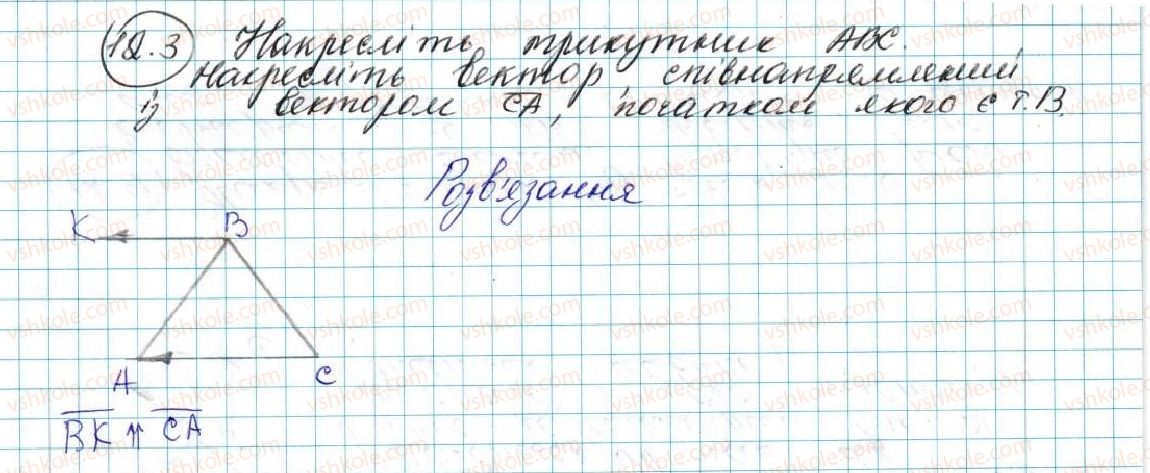 12.3 Накресліть трикутник ABC.
Накресліть вектор, співнапрямлений
із вектором CA, початком якого є т. B.
Розв'язання
K B
A C
BK ⇈ CA